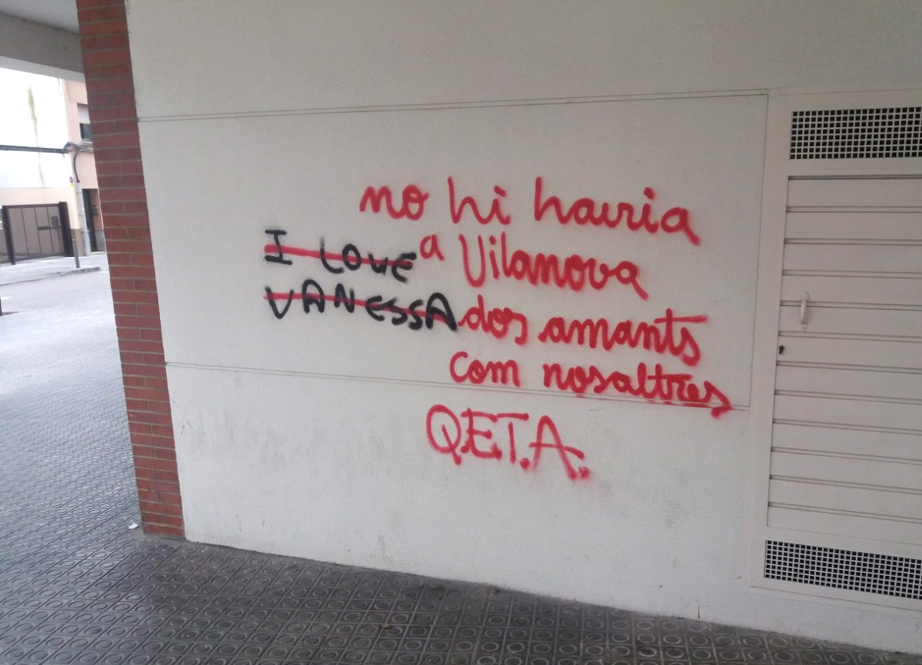 no hi hauria
a Vilanova
dos amants
com nosaltres
Q.E.T.A.
I LOVE
VANESSA